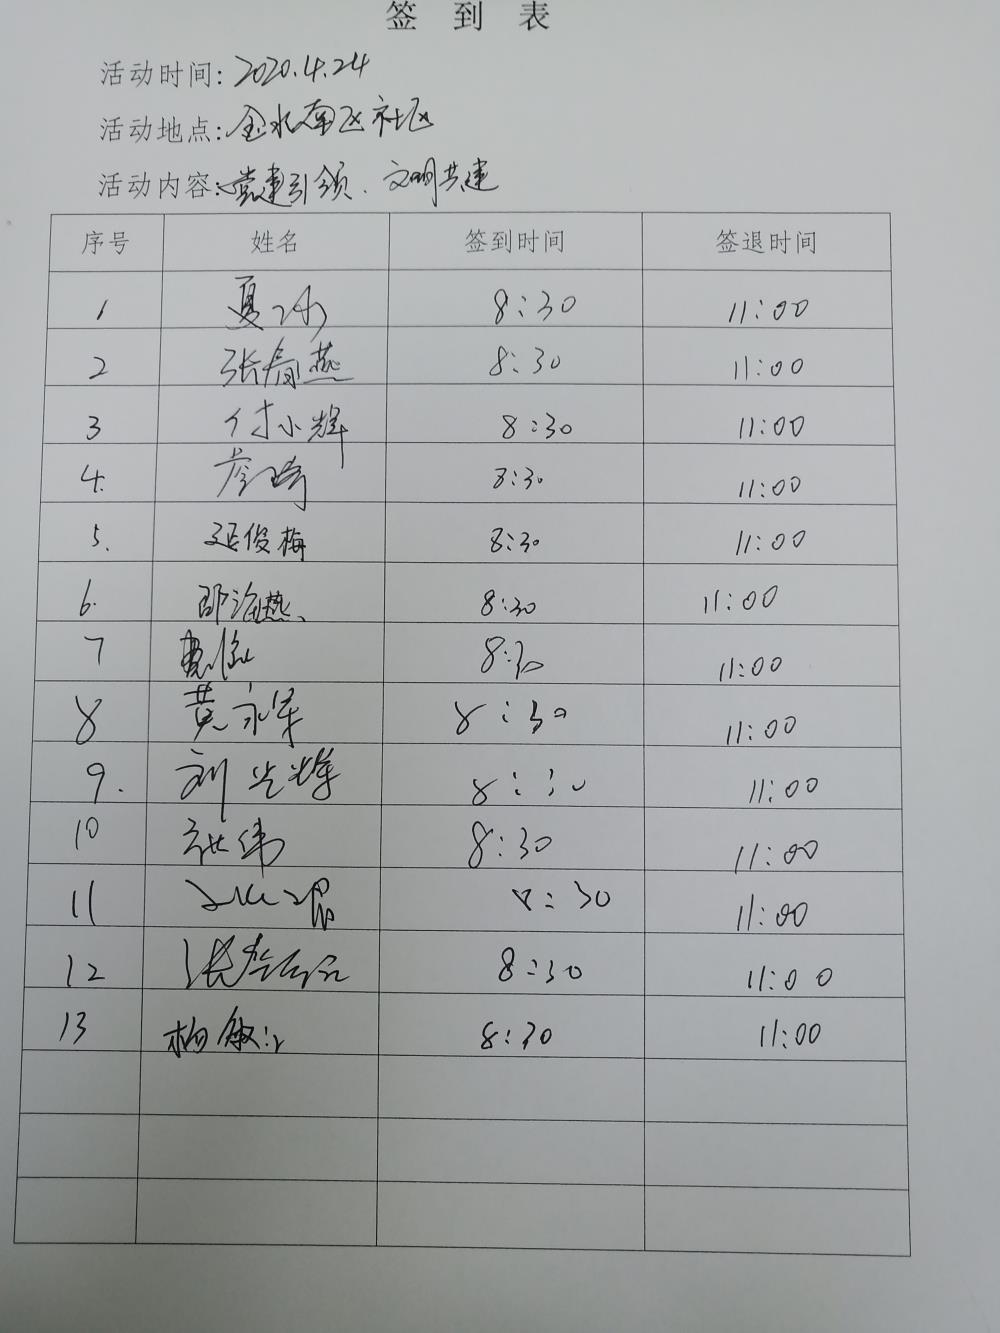 签 到 表
活动时间: 2020.4.24
活动地点: 金水南区社区
活动内容: 党建引领、文明共建
序号 姓名 签到时间 签退时间
1 夏冰 8:30 11:00
2 张春燕 8:30 11:00
3 付小辉 8:30 11:00
4. 8:30 11:00
5. 延俊梅 8:30 11:00
6. 邵海燕 8:30 11:00
7 8:30 11:00
8 黄永军 8:30 11:00
9. 刘光辉 8:30 11:00
10 张伟 8:30 11:00
11 8:30 11:00
12 8:30 11:00
13 8:30 11:00